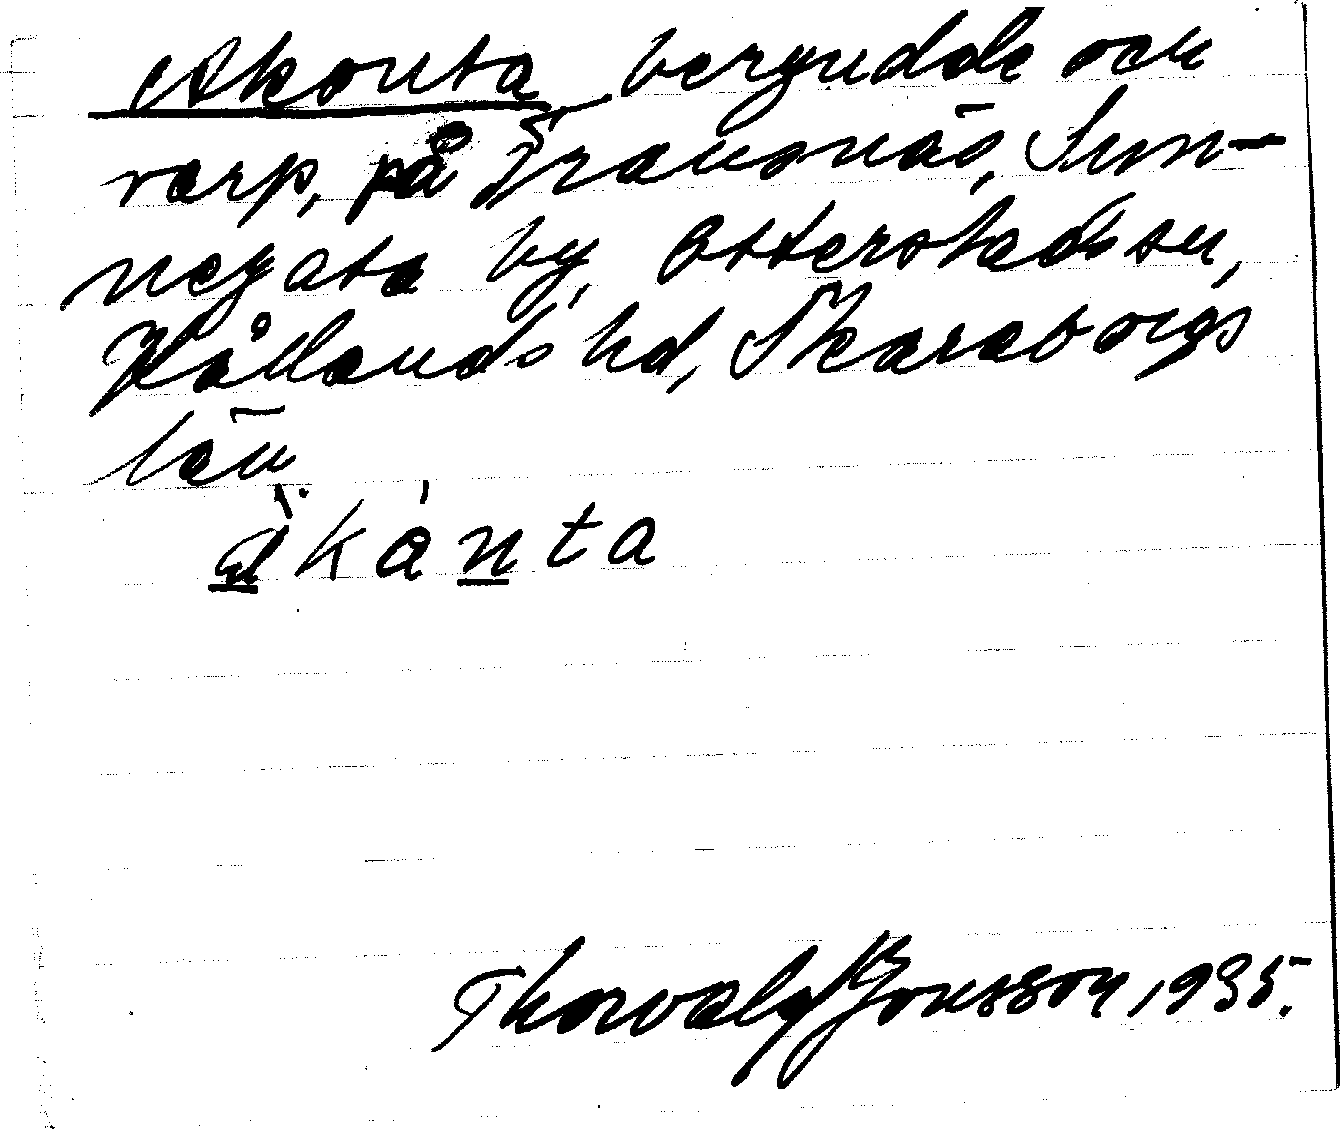 Akonta, bergudde och
varp, på Fransnäs, Sun-
negata by, Otterstads sn,
Kållands hd, Skaraborgs
län.
Thorvald Jonsson, 1935.